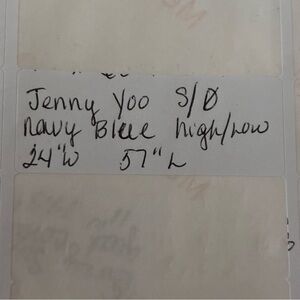 Jenny Yoo S/D
navy Blue high/low
24"W 57"L